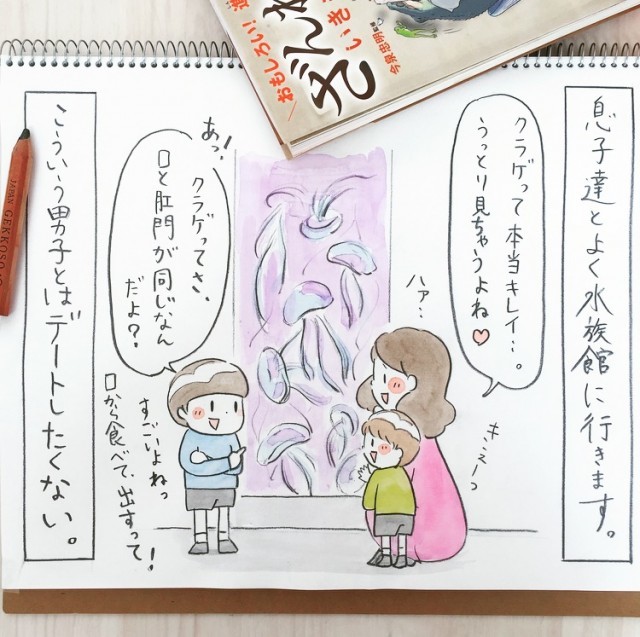 おもしろい!
ざんね
いきも
今泉忠明
息子達とよく水族館に行きます。
クラゲって本当キレイ…。
うっとり見ちゃうよね♡
ハァ…
きえーっ
あっ!
クラゲってさ、
口と肛門が同じなん
だよ?
すごいよねっ
口から食べて、出すって!
こういう男子とはデートしたくない。
JAPAN GEKKOSO